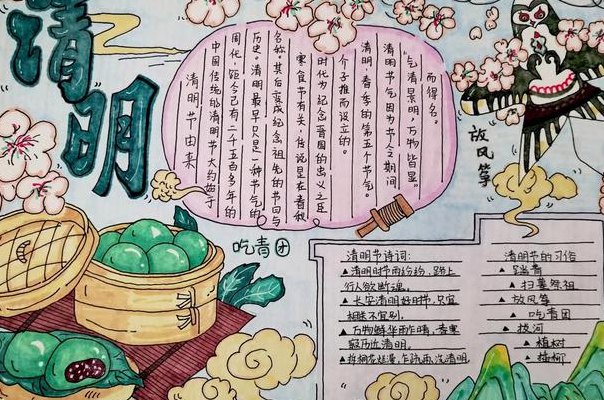 清明
清明节由来
中国传统的清明节大约始于
周代，距今已有二千五百多年的
历史。清明最早只是一种节气的
名称，其后变成纪念祖先的节日与
寒食节有关，传说是在春秋
时代为纪念晋国的忠义之臣
介子推而设立的。
清明，春季的第五个节气。
清明节气因为节令期间
“气清景明，万物皆显”
而得名。
放风筝
吃青团
清明节诗词：
▲清明时节雨纷纷，路上
行人欲断魂。
▲长安清明好时节，只宜
相送不宜别。
▲万物鲜华雨乍晴，春寒
最历近清明。
▲拆桐花烂漫，乍疏雨、洗清明。
清明节的习俗
▲踏青
▲扫墓祭祖
▲放风筝
▲吃青团
▲拔河
▲植树
▲插柳